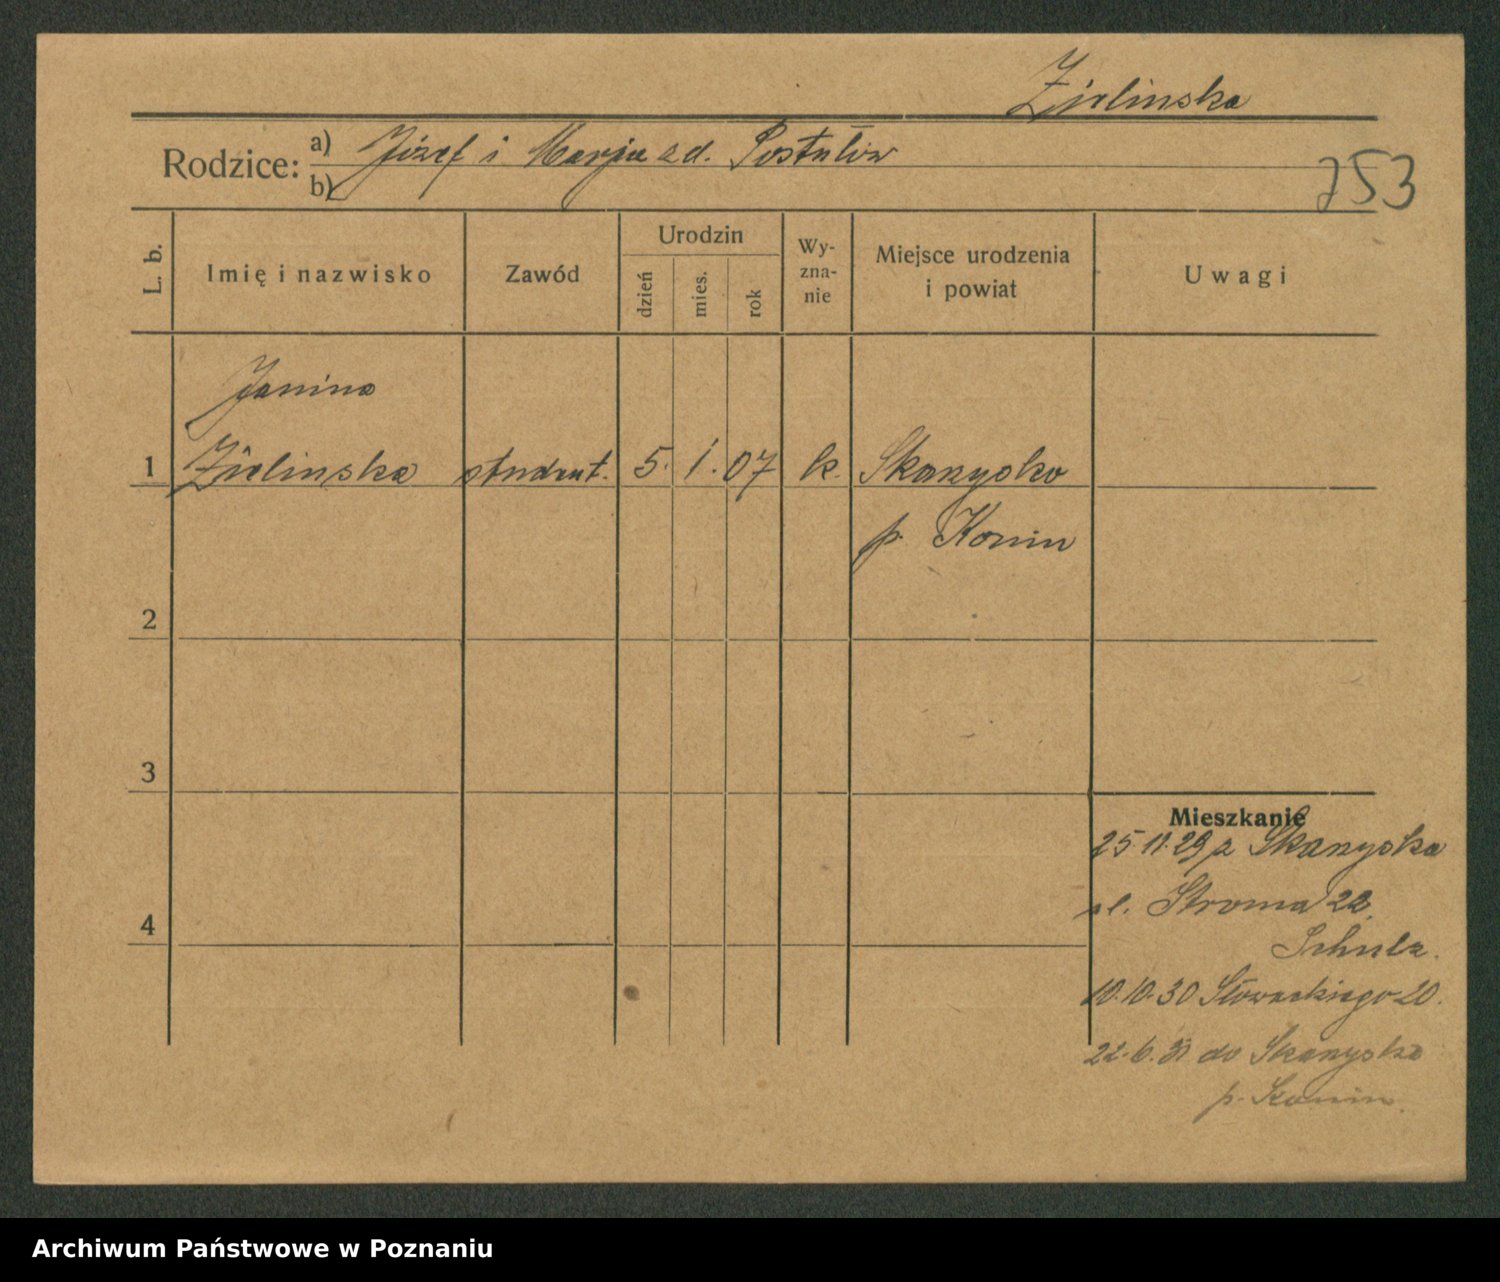 Zielinska
Rodzice: a) Józef i Marja zd. Postułów
b)
753
L. b.
Imię i nazwisko
Zawód
Urodzin
dzień
mies.
rok
Wy-
zna-
nie
Miejsce urodzenia
i powiat
Uwagi
Janina
1 Zielinska student. 5. 1. 07 k. Skarzysko
p. Konin
2
3
4
Mieszkanie
25.11.29 z Skarzyska
ul. Stroma 22.
Schulz.
10.10.30 Słowackiego 20.
22.6.31 do Skarzyska
p. Konin.
Archiwum Państwowe w Poznaniu